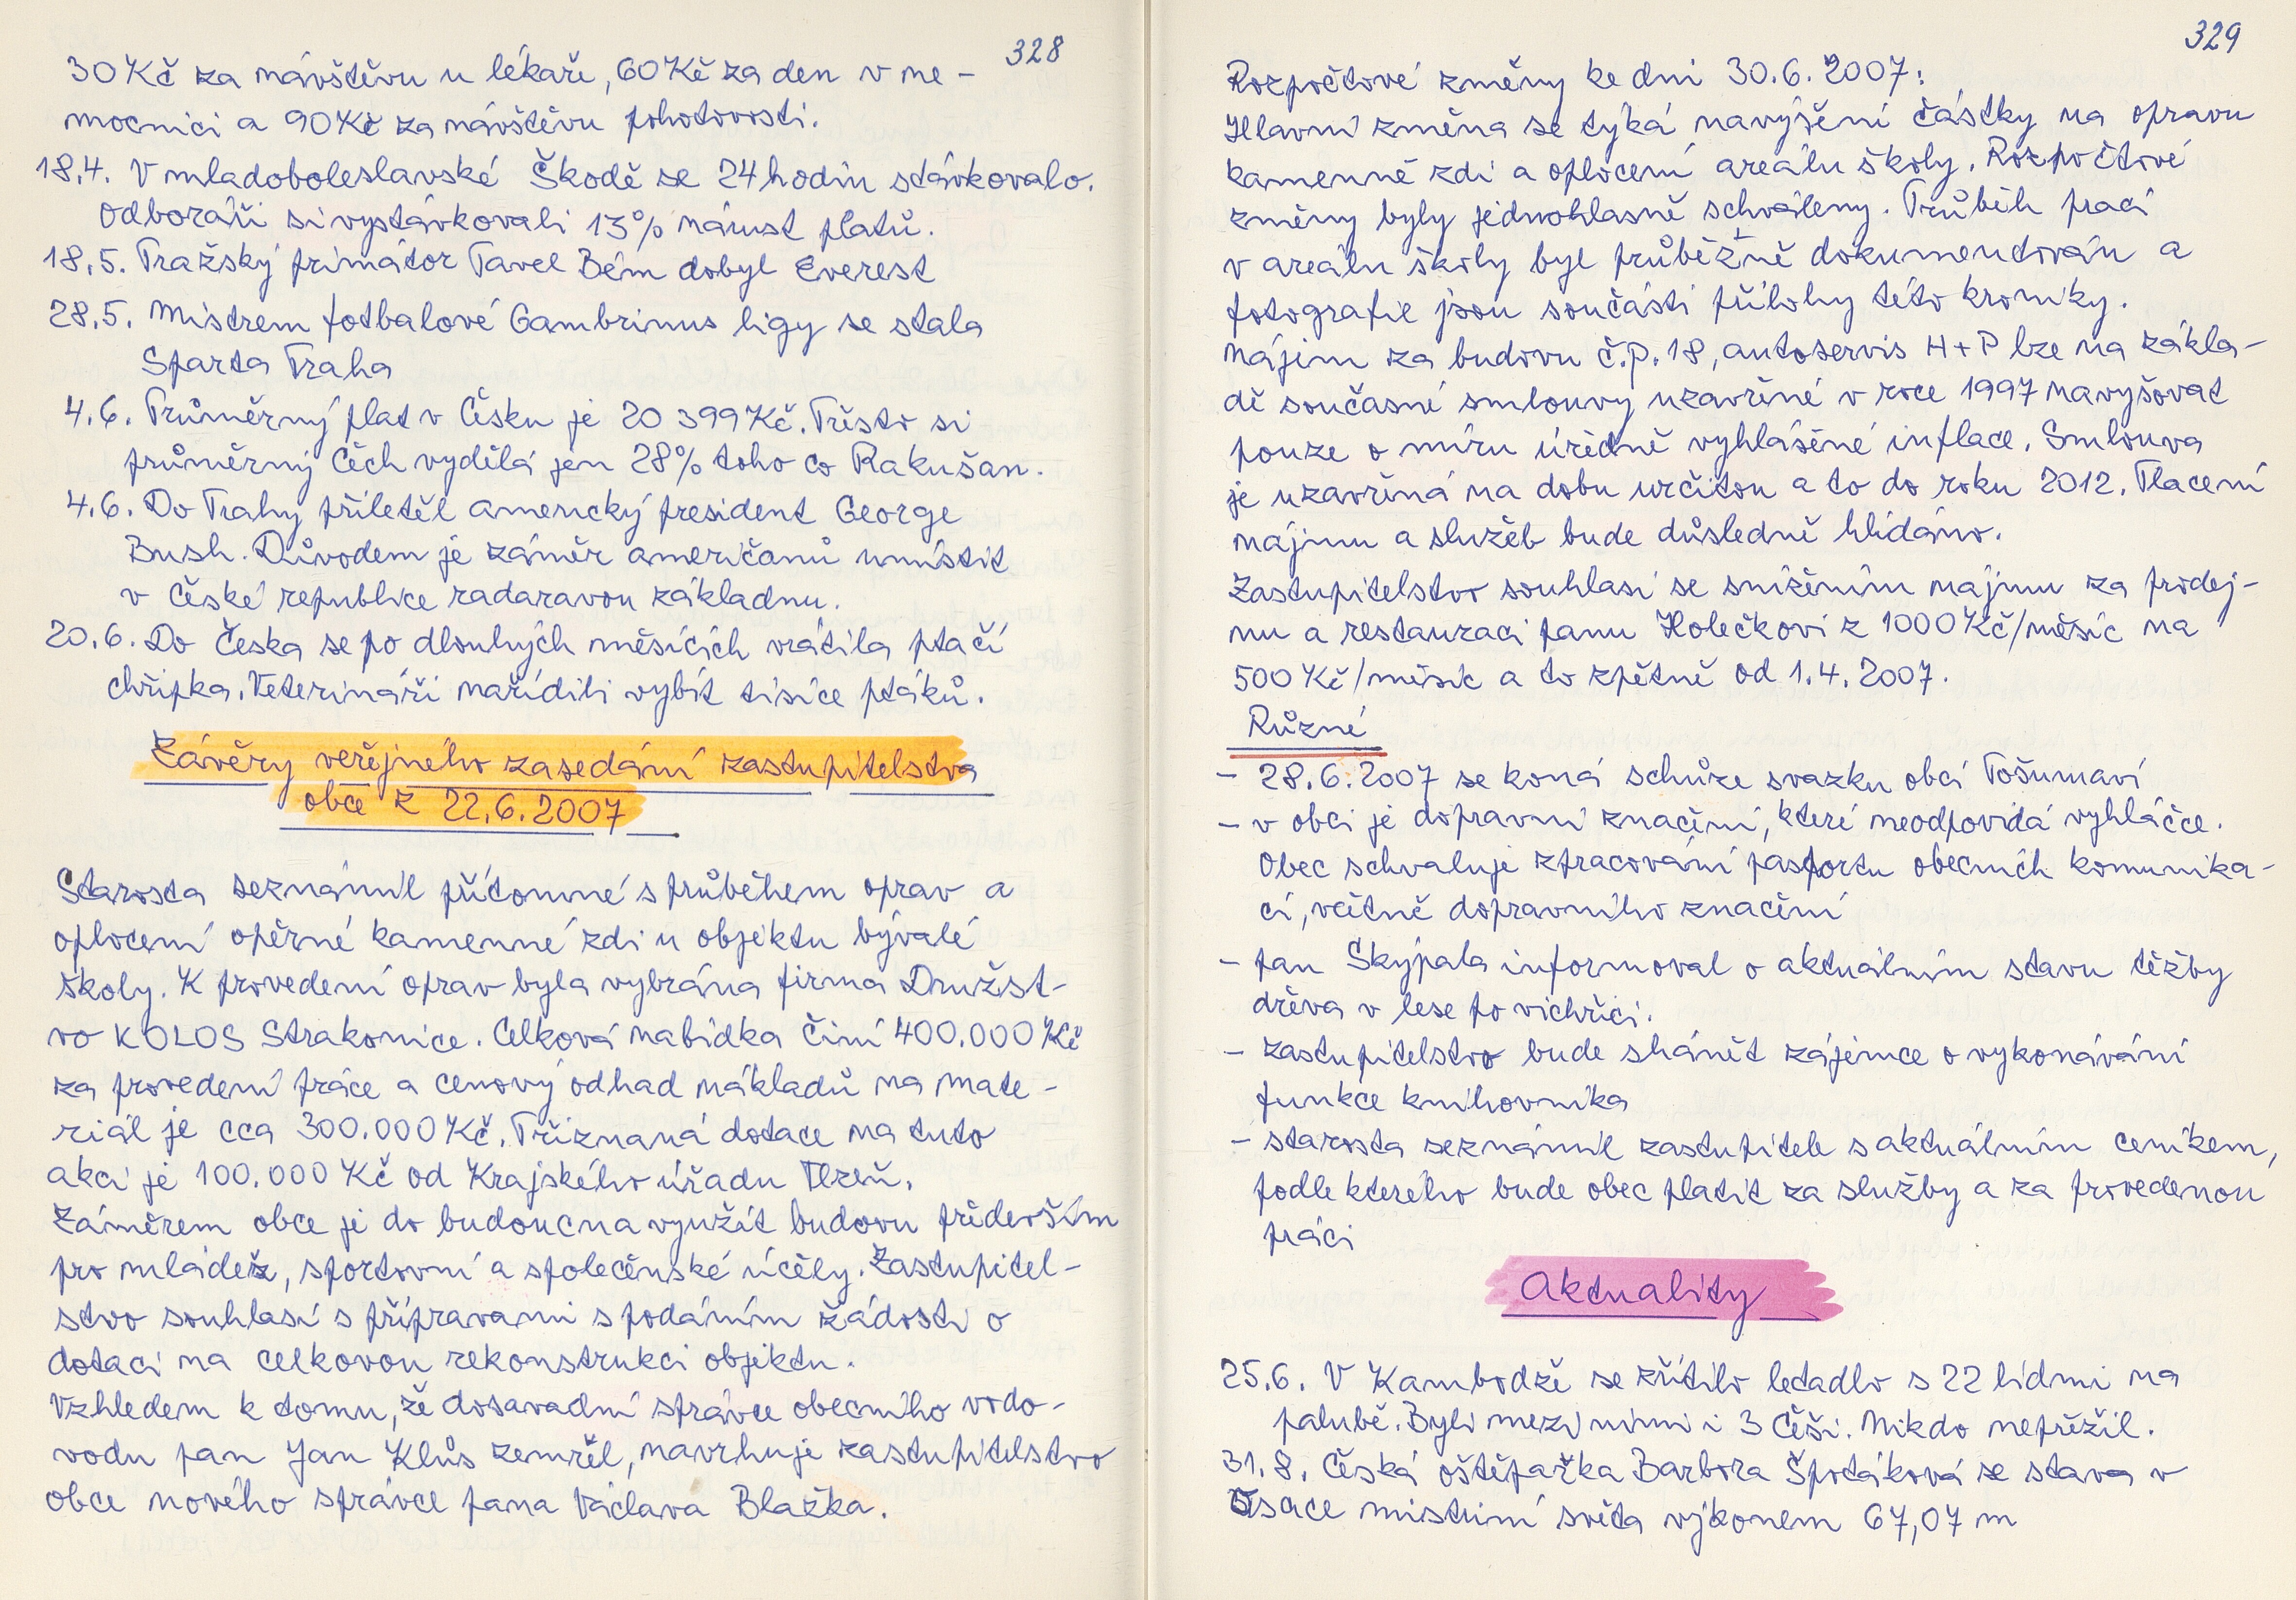 328
30 Kč za návštěvu u lékaře, 60 Kč za den v ne-
mocnici a 90 Kč za návštěvu pohotovosti.
18.4. V mladoboleslavské Škodě se 24 hodin stávkovalo.
Odboráři si vystávkovali 13% nárust platů.
18.5. Pražský primátor Pavel Bém dobyl Everest
28.5. Mistrem fotbalové Gambrinus ligy se stala
Sparta Praha
4.6. Průměrný plat v Česku je 20 399 Kč. Přesto si
průměrný Čech vydělá jen 28% toho co Rakušan.
4.6. Do Prahy přiletěl americký president George
Bush. Důvodem je záměr američanů umístit
v České republice radaravou základnu.
20.6. Do Česka se po dlouhých měsících vrátila ptačí
chřipka. Veterináři nařídili vybít tisíce ptáků.
Závěry veřejného zasedání zastupitelstva
obce z 22.6.2007
Starosta seznámil přítomné s průběhem oprav a
oplocení opěrné kamenné zdi u objektu bývalé
školy. K provedení oprav byla vybrána firma Družst-
vo KOLOS Strakonice. Celková nabídka činí 400.000 Kč
za provedení práce a cenový odhad nákladů na mate-
riál je cca 300.000 Kč. Přiznaná dotace na tuto
akci je 100.000 Kč od Krajského úřadu Plzeň.
Záměrem obce je do budoucna využít budovu především
pro mládež, sportovní a společenské účely. Zastupitel-
stvo souhlasí s přípravami s podáním žádosti o
dotaci na celkovou rekonstrukci objektu.
Vzhledem k tomu, že dosavadní správce obecního vodo-
vodu pan Jan Klůs zemřel, navrhuje zastupitelstvo
obce nového správce pana Václava Blažka.
329
Rozpočtové změny ke dni 30.6.2007:
Hlavní změna se týká navýšení částky na opravu
kamenné zdi a oplocení areálu školy. Rozpočtové
změny byly jednohlasně schváleny. Průběh prací
v areálu školy byl průběžně dokumentován a
fotografie jsou součástí přílohy této kroniky.
Nájem za budovu č.p. 18, autoservis H+P lze na zákla-
dě současné smlouvy uzavřené v roce 1997 navyšovat
pouze o míru úředně vyhlášené inflace. Smlouva
je uzavřená na dobu určitou a to do roku 2012. Placení
nájmu a služeb bude důsledně hlídáno.
Zastupitelstvo souhlasí se snížením nájmu za prodej-
nu a restauraci panu Holečkovi z 1000 Kč/měsíc na
500 Kč/měsíc a to zpětně od 1.4.2007.
Různé
- 28.6.2007 se koná schůze svazku obcí Pošumaví
- v obci je dopravní značení, které neodpovídá vyhlášce.
Obec schvaluje zpracování pasportu obecních komunika-
cí, včetně dopravního značení
- pan Skýpala informoval o aktuálním stavu těžby
dřeva v lese po vichřici.
- zastupitelstvo bude shánět zájemce o vykonávání
funkce knihovníka
- starosta seznámil zastupitele s aktuálním ceníkem,
podle kterého bude obec platit za služby a za provedenou
práci
Aktuality
25.6. V Kambodže se zřítilo letadlo s 22 lidmi na
palubě. Byli mezi nimi i 3 Češi. Nikdo nepřežil.
31.8. Česká oštěpařka Barbora Špotáková se stava v
Ósace mistriní světa výkonem 67,07 m